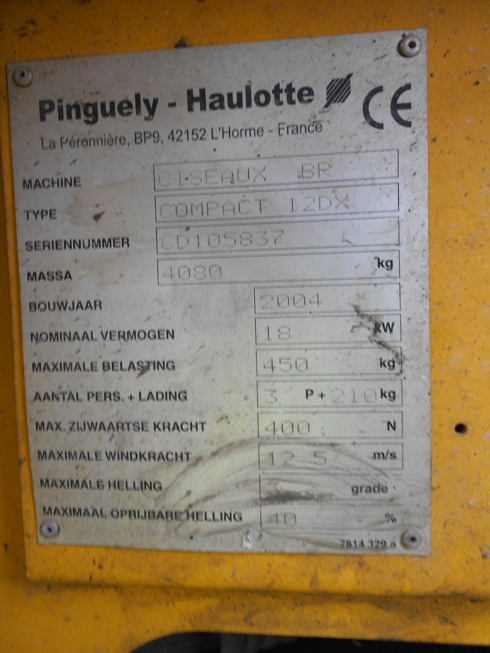 Pinguely - Haulotte CE
La Péronnière, BP9, 42152 L'Horme - France
MACHINE CISEAUX BR
TYPE COMPACT 12DX
SERIENNUMMER CD105837
MASSA 4080 kg
BOUWJAAR 2004
NOMINAAL VERMOGEN 18 kW
MAXIMALE BELASTING 450 kg
AANTAL PERS. + LADING 3 P + 210 kg
MAX. ZIJWAARTSE KRACHT 400 N
MAXIMALE WINDKRACHT 12.5 m/s
MAXIMALE HELLING grade
MAXIMAAL OPRIJBARE HELLING 40 %
7814 329 a